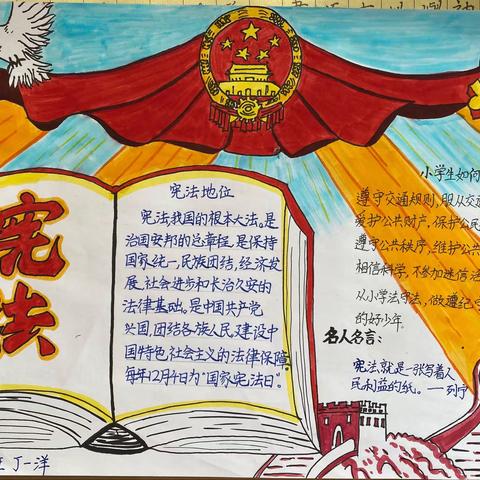 宪法
宪法地位
宪法我国的根本大法。是
治国安邦的总章程,是保持
国家统一,民族团结,经济发
展,社会进步和长治久安的
法律基础。是中国共产党
兴国,团结各族人民,建设中
国特色社会主义的法律保障。
每年12月4日为"国家宪法日"。
小学生如何
遵守交通规则,服从交
爱护公共财产,保护公民
遵守公共秩序,维护公共
相信科学,不参加迷信活
从小学法守法,做遵纪守
的好少年。
名人名言:
宪法,就是一张写着人
民权益的纸。——列宁
丁一洋